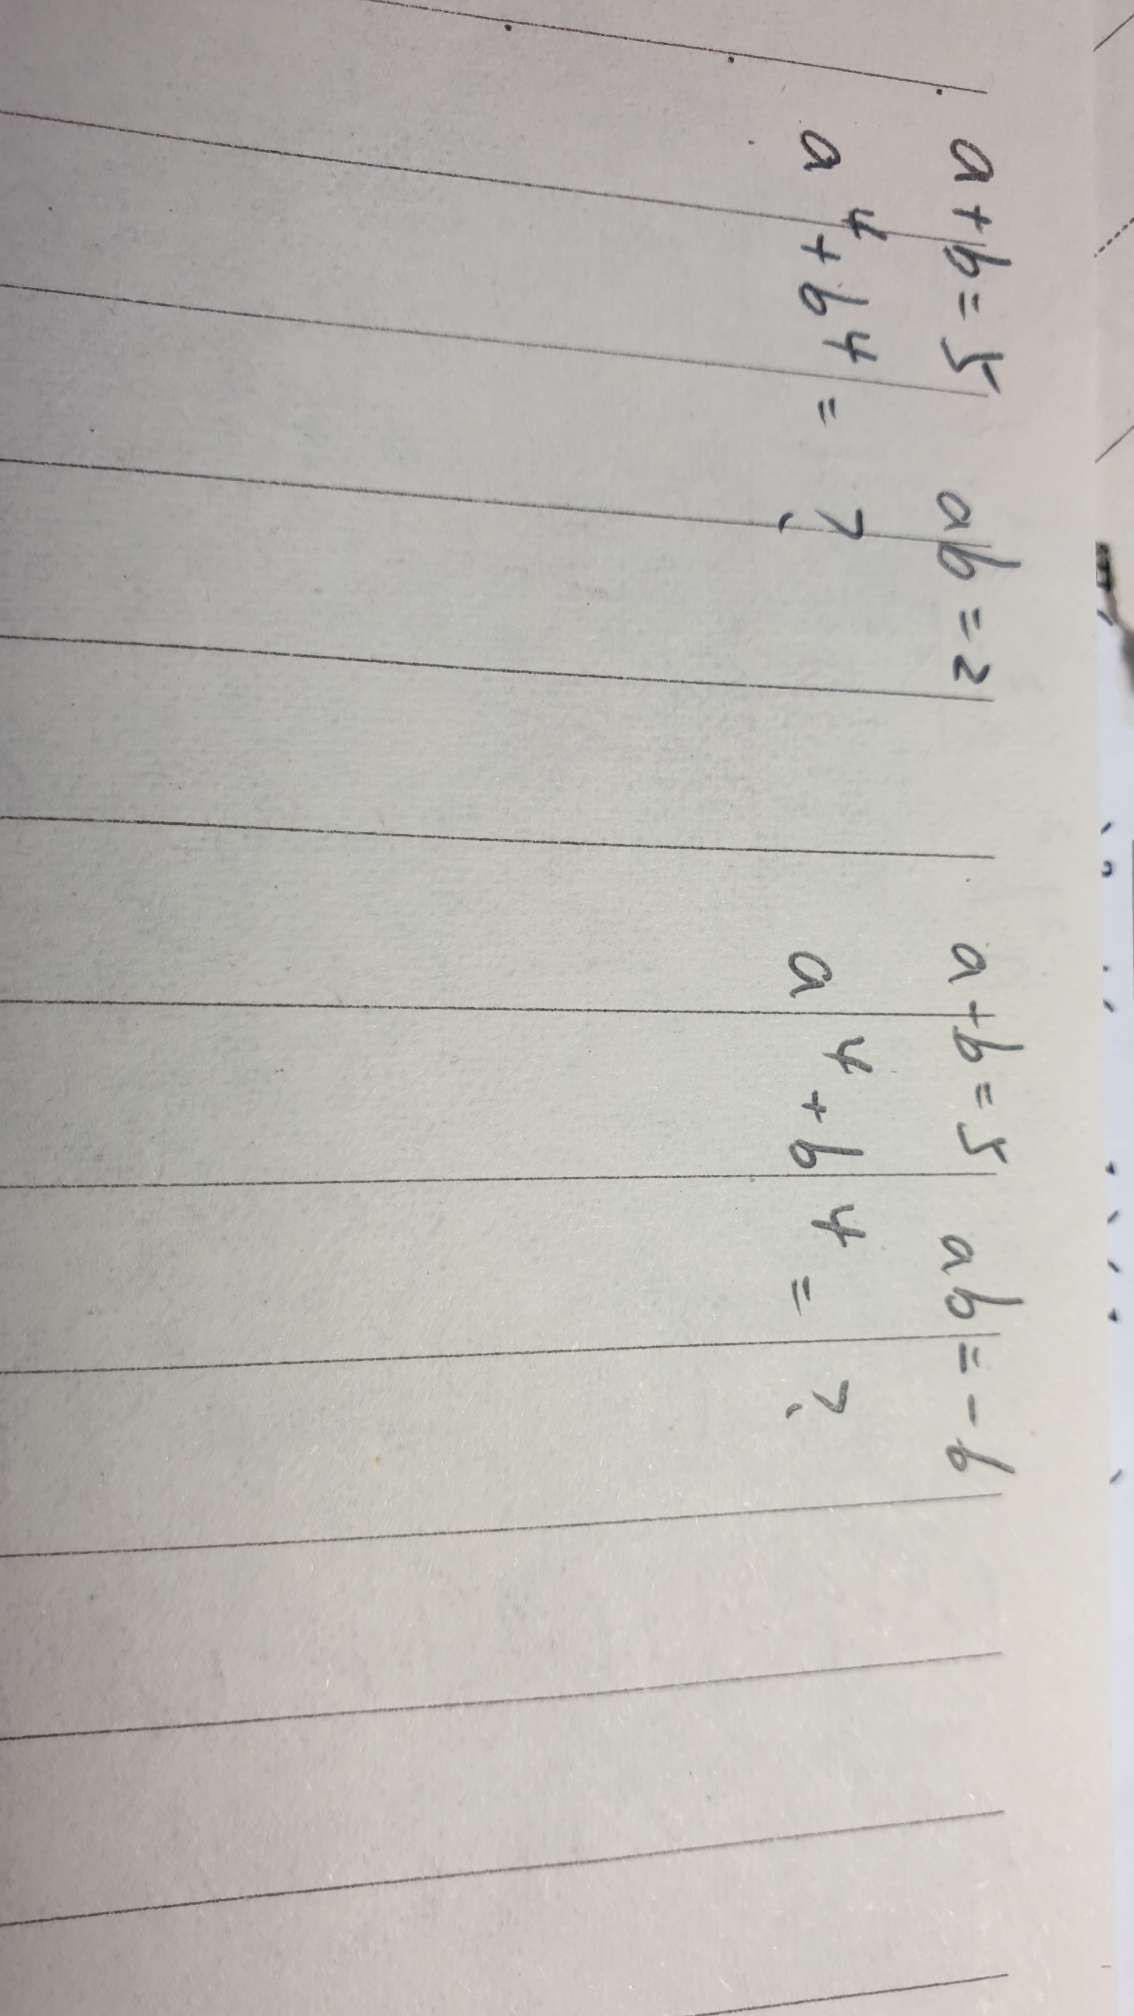 a+b=5 ab=2
a⁴+b⁴=?
a+b=5 ab=-6
a⁴+b⁴=?